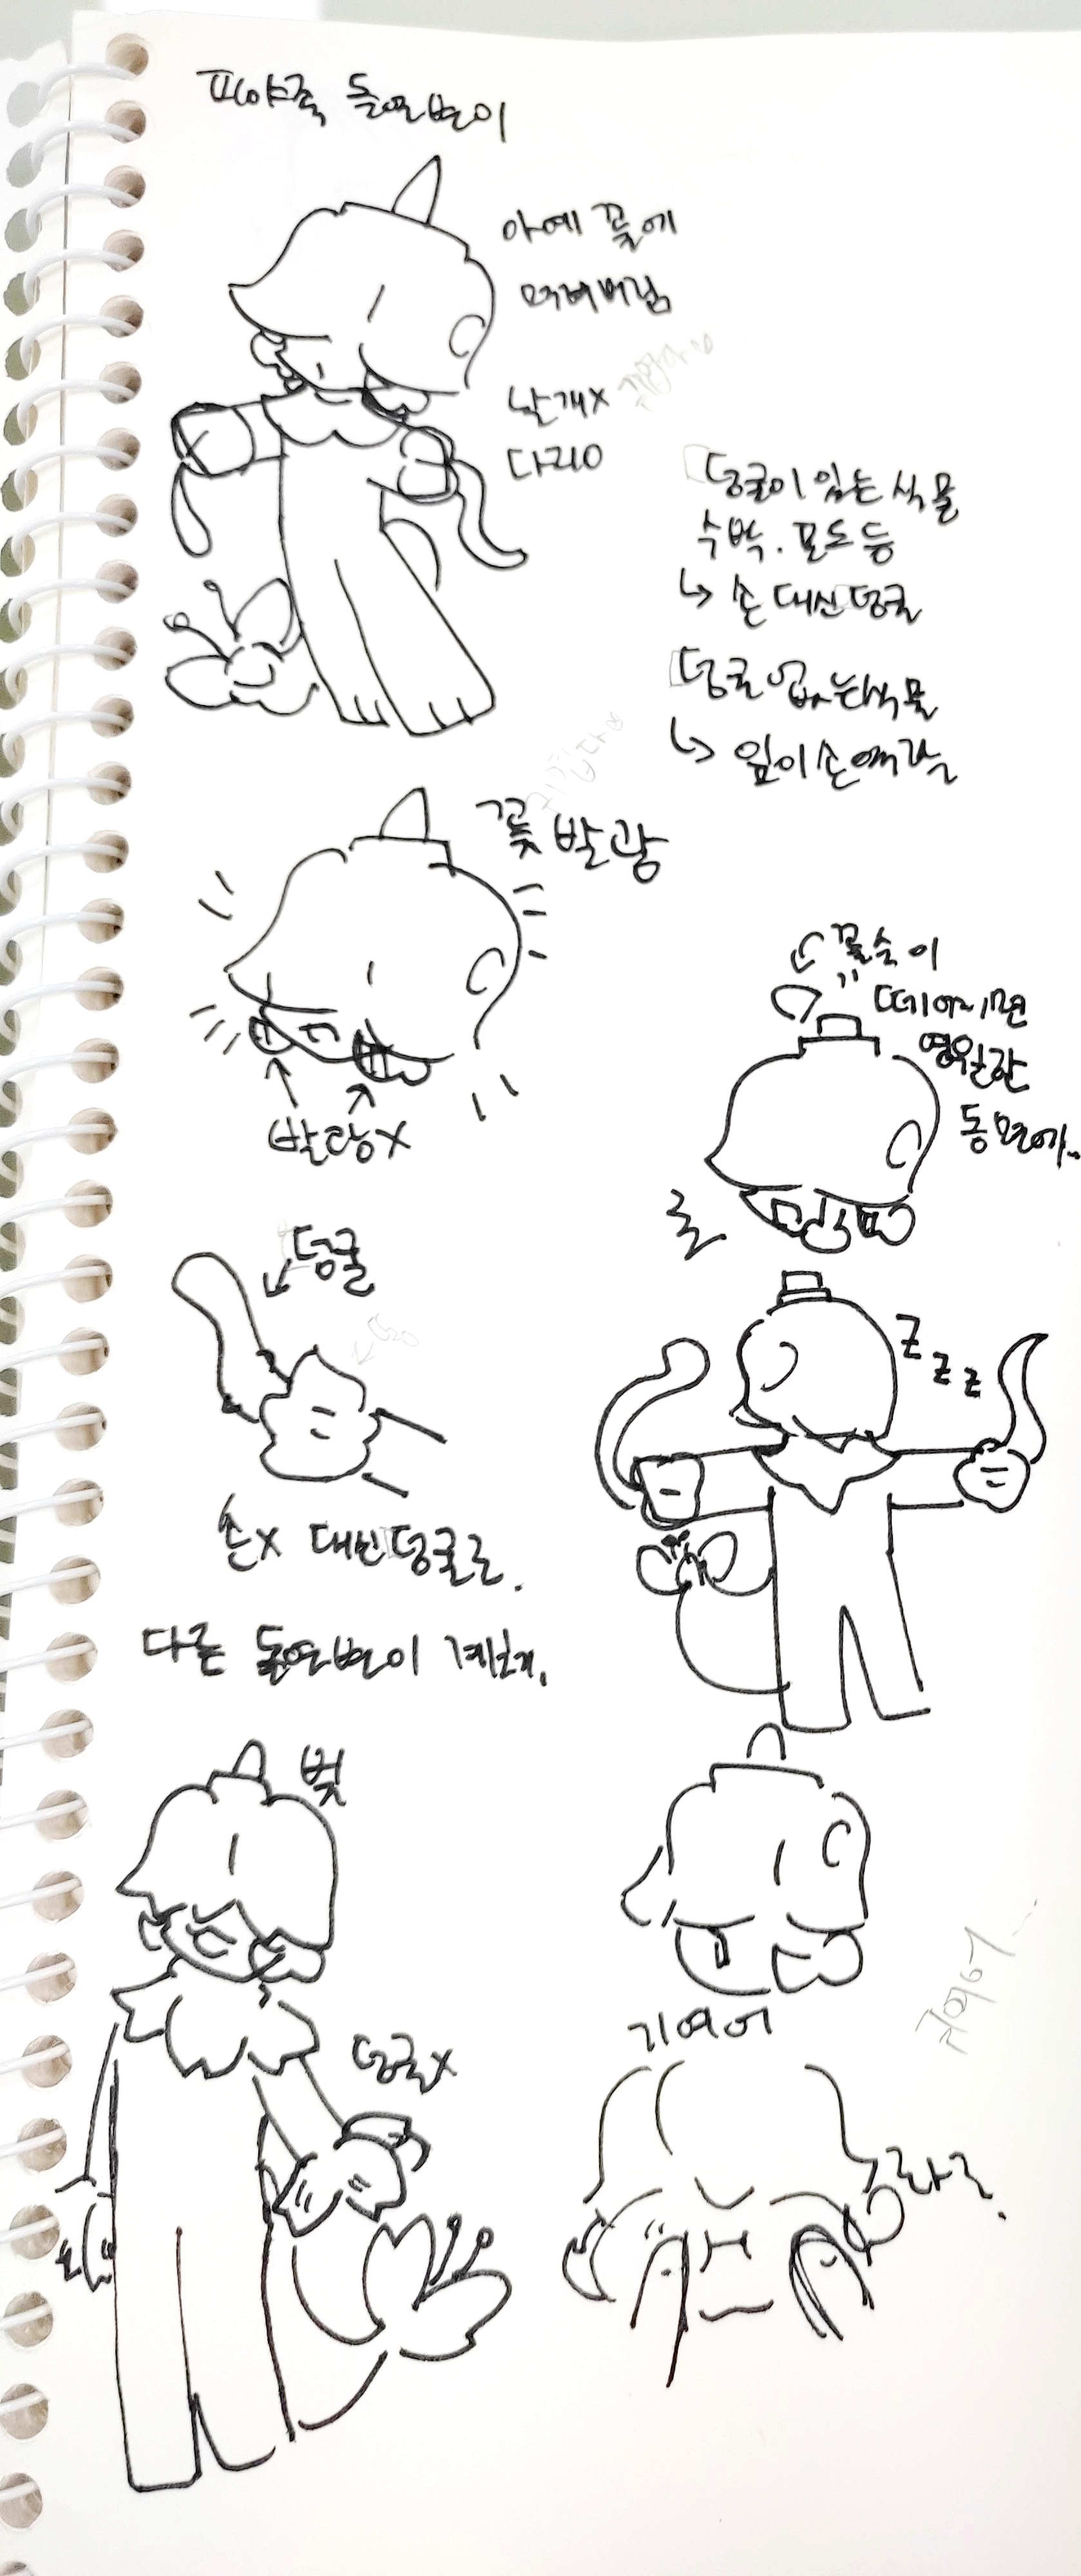 피야족 돌연변이
아예 꽃에
먹혀버림
날개X
다리O
덩굴이 있는 식물
수박. 포도 등
↳ 손 대신 덩굴
덩굴 없는 식물
↳ 잎이 손 역할
꽃 발광
발광X
꽃술이
떼어지면
영원한
동면에..
덩굴
손X 대신 덩굴로.
Z Z Z
다른 돌연변이 개체.
벚
덩굴X
기여어